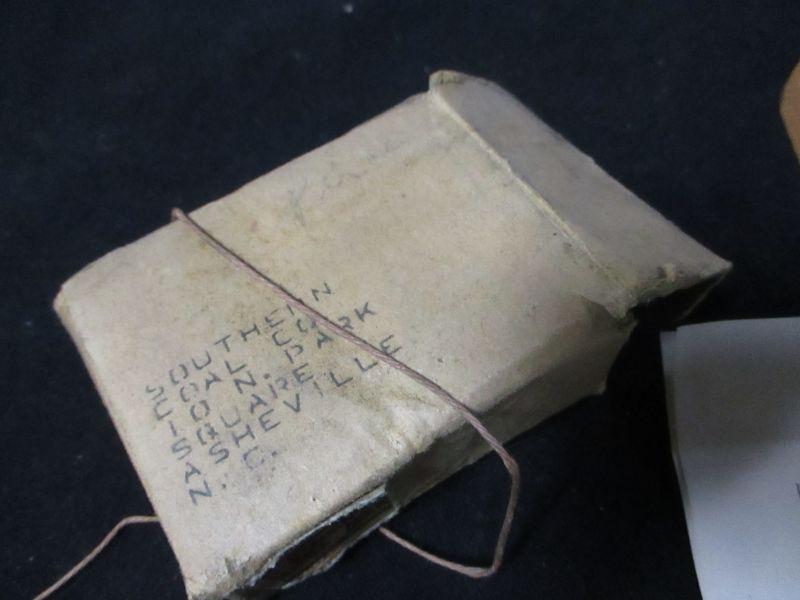 SOUTHERN
COAL CO
10 N. PARK
SQUARE
ASHEVILLE
N. C.